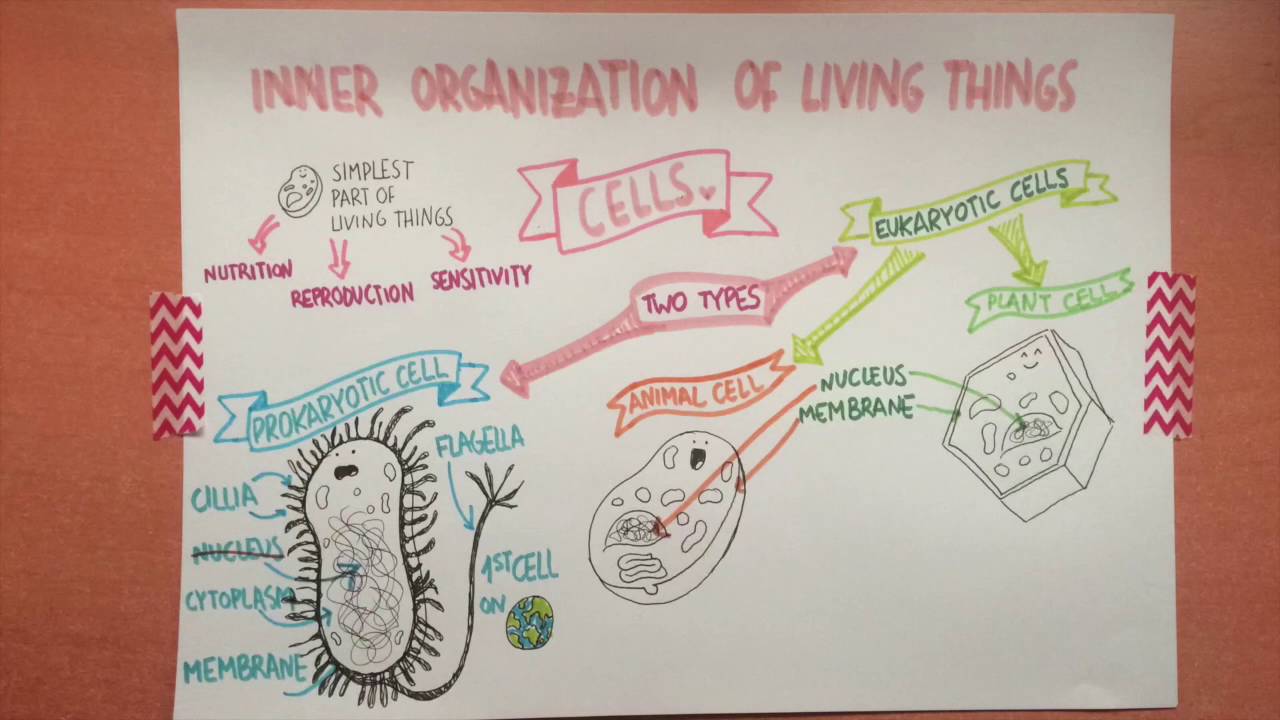 INNER ORGANIZATION OF LIVING THINGS
SIMPLEST
PART OF
LIVING THINGS
NUTRITION
REPRODUCTION
SENSITIVITY
CELLS
TWO TYPES
EUKARYOTIC CELLS
PLANT CELL
ANIMAL CELL
NUCLEUS
MEMBRANE
PROKARYOTIC CELL
FLAGELLA
CILLIA
NUCLEUS
CYTOPLASM
MEMBRANE
1ST CELL
ON